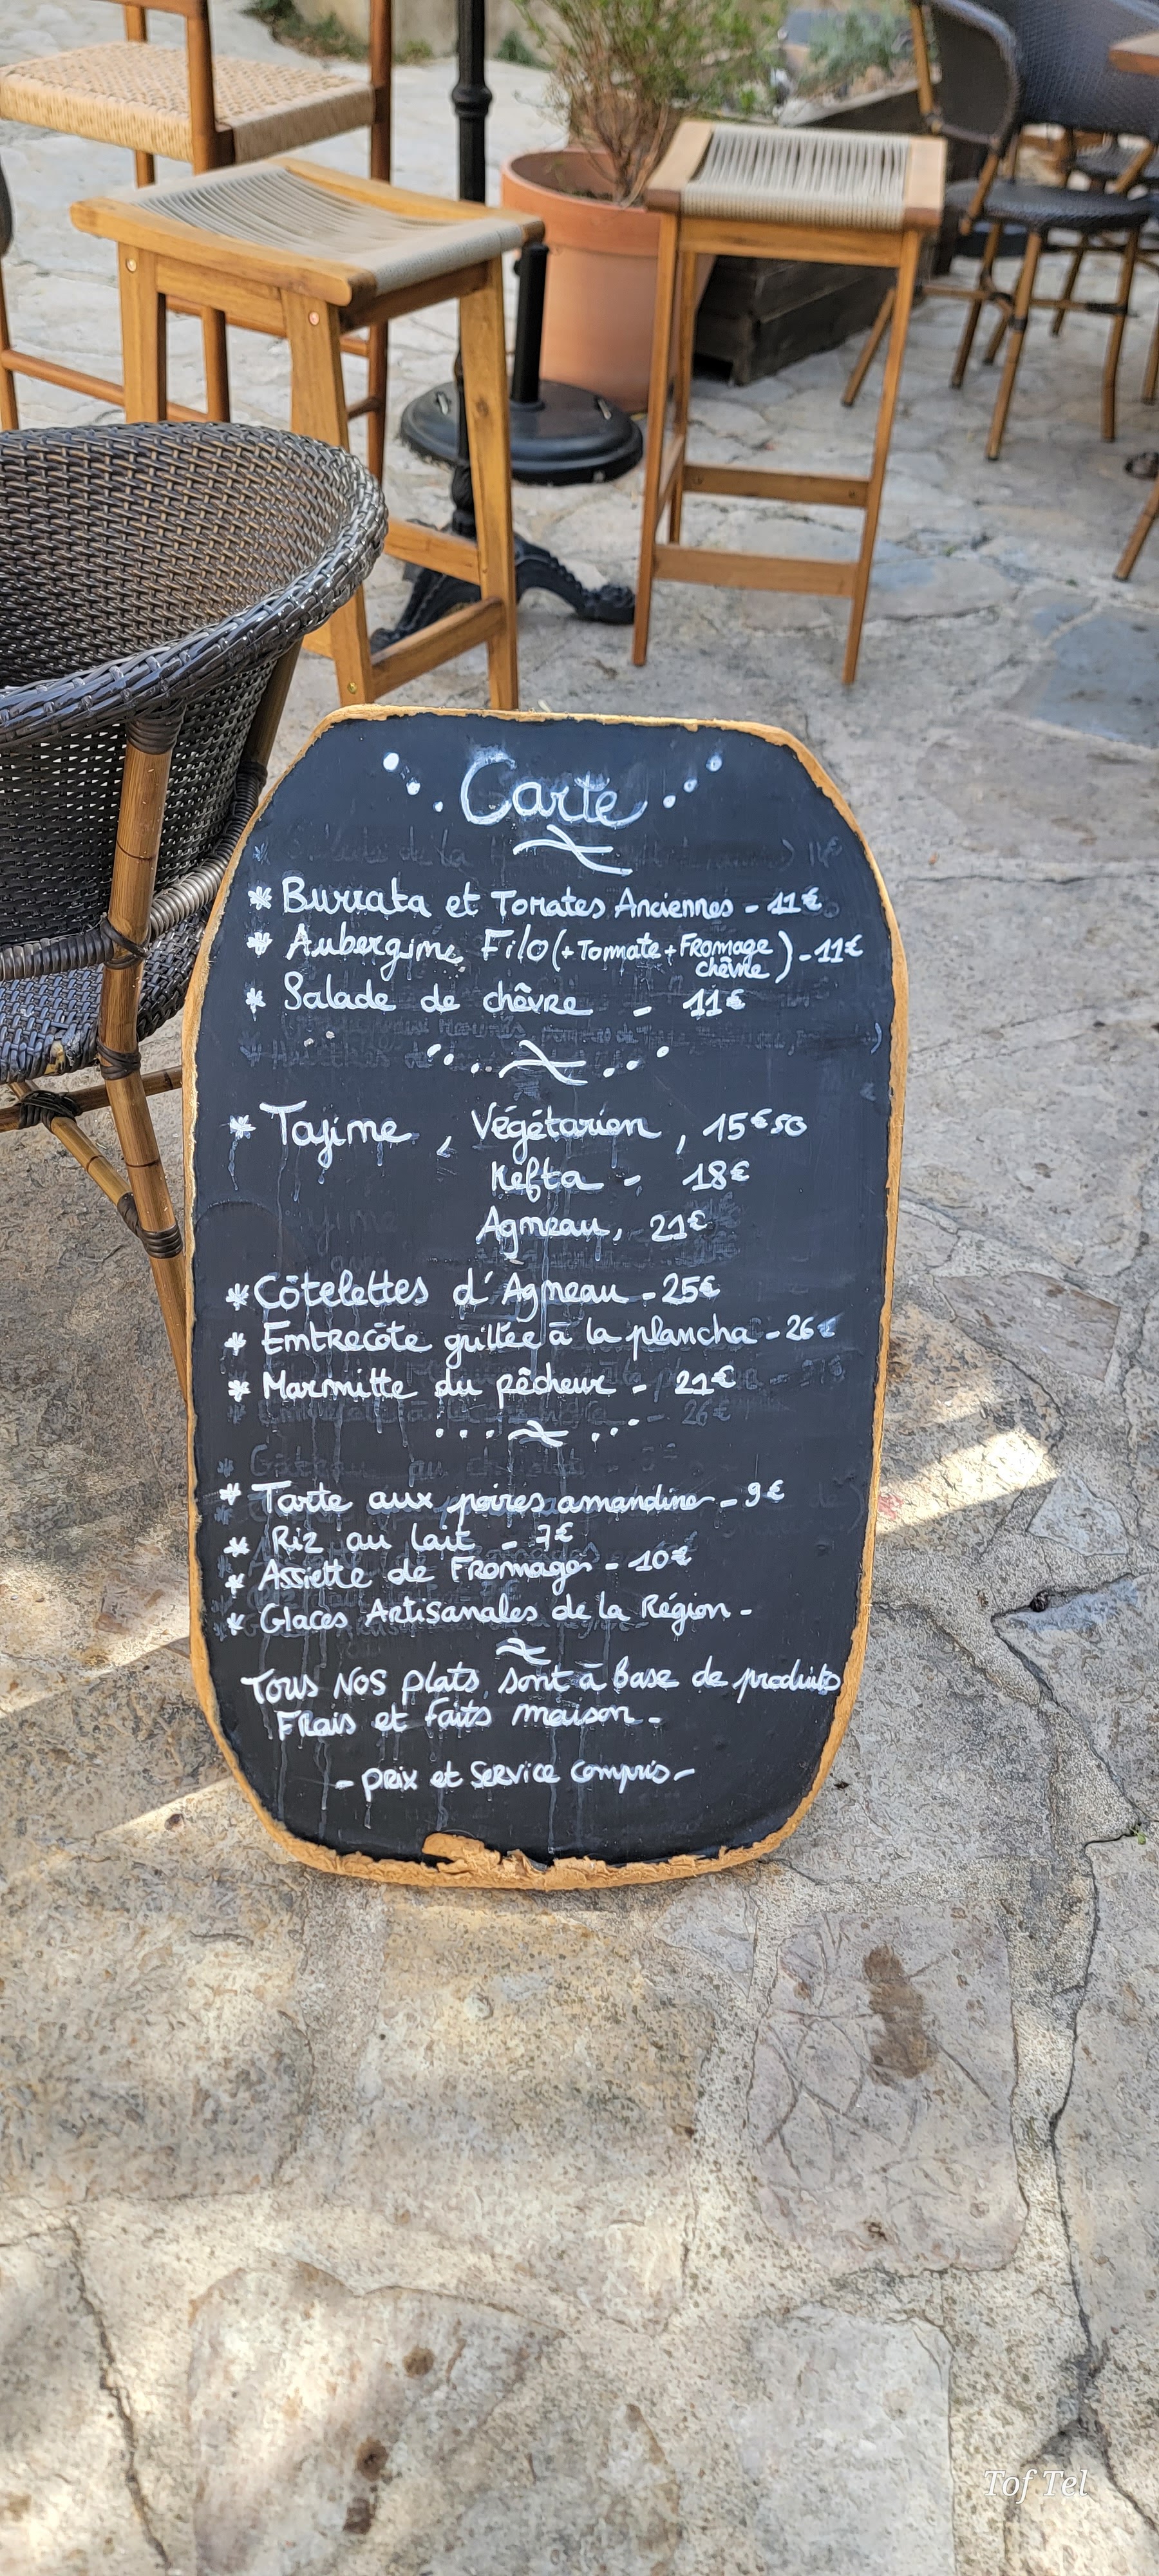 Carte
* Burrata et Tomates Anciennes - 11€
* Aubergine Filo (+ Tommate + Fromage chêvre) - 11€
* Salade de chêvre - 11€
* Tajine, Végétarien, 15€50
Kefta - 18€
Agneau, 21€
* Côtelettes d'Agneau - 25€
* Entrecôte grillée à la plancha - 26€
* Marmitte du pêcheur - 21€
* Tarte aux poires amandine - 9€
* Riz au lait - 7€
* Assiette de Fromages - 10€
* Glaces Artisanales de la Région -
Tous nos plats sont à base de produits
Frais et faits maison -
- Prix et Service compris -
Tof Tel